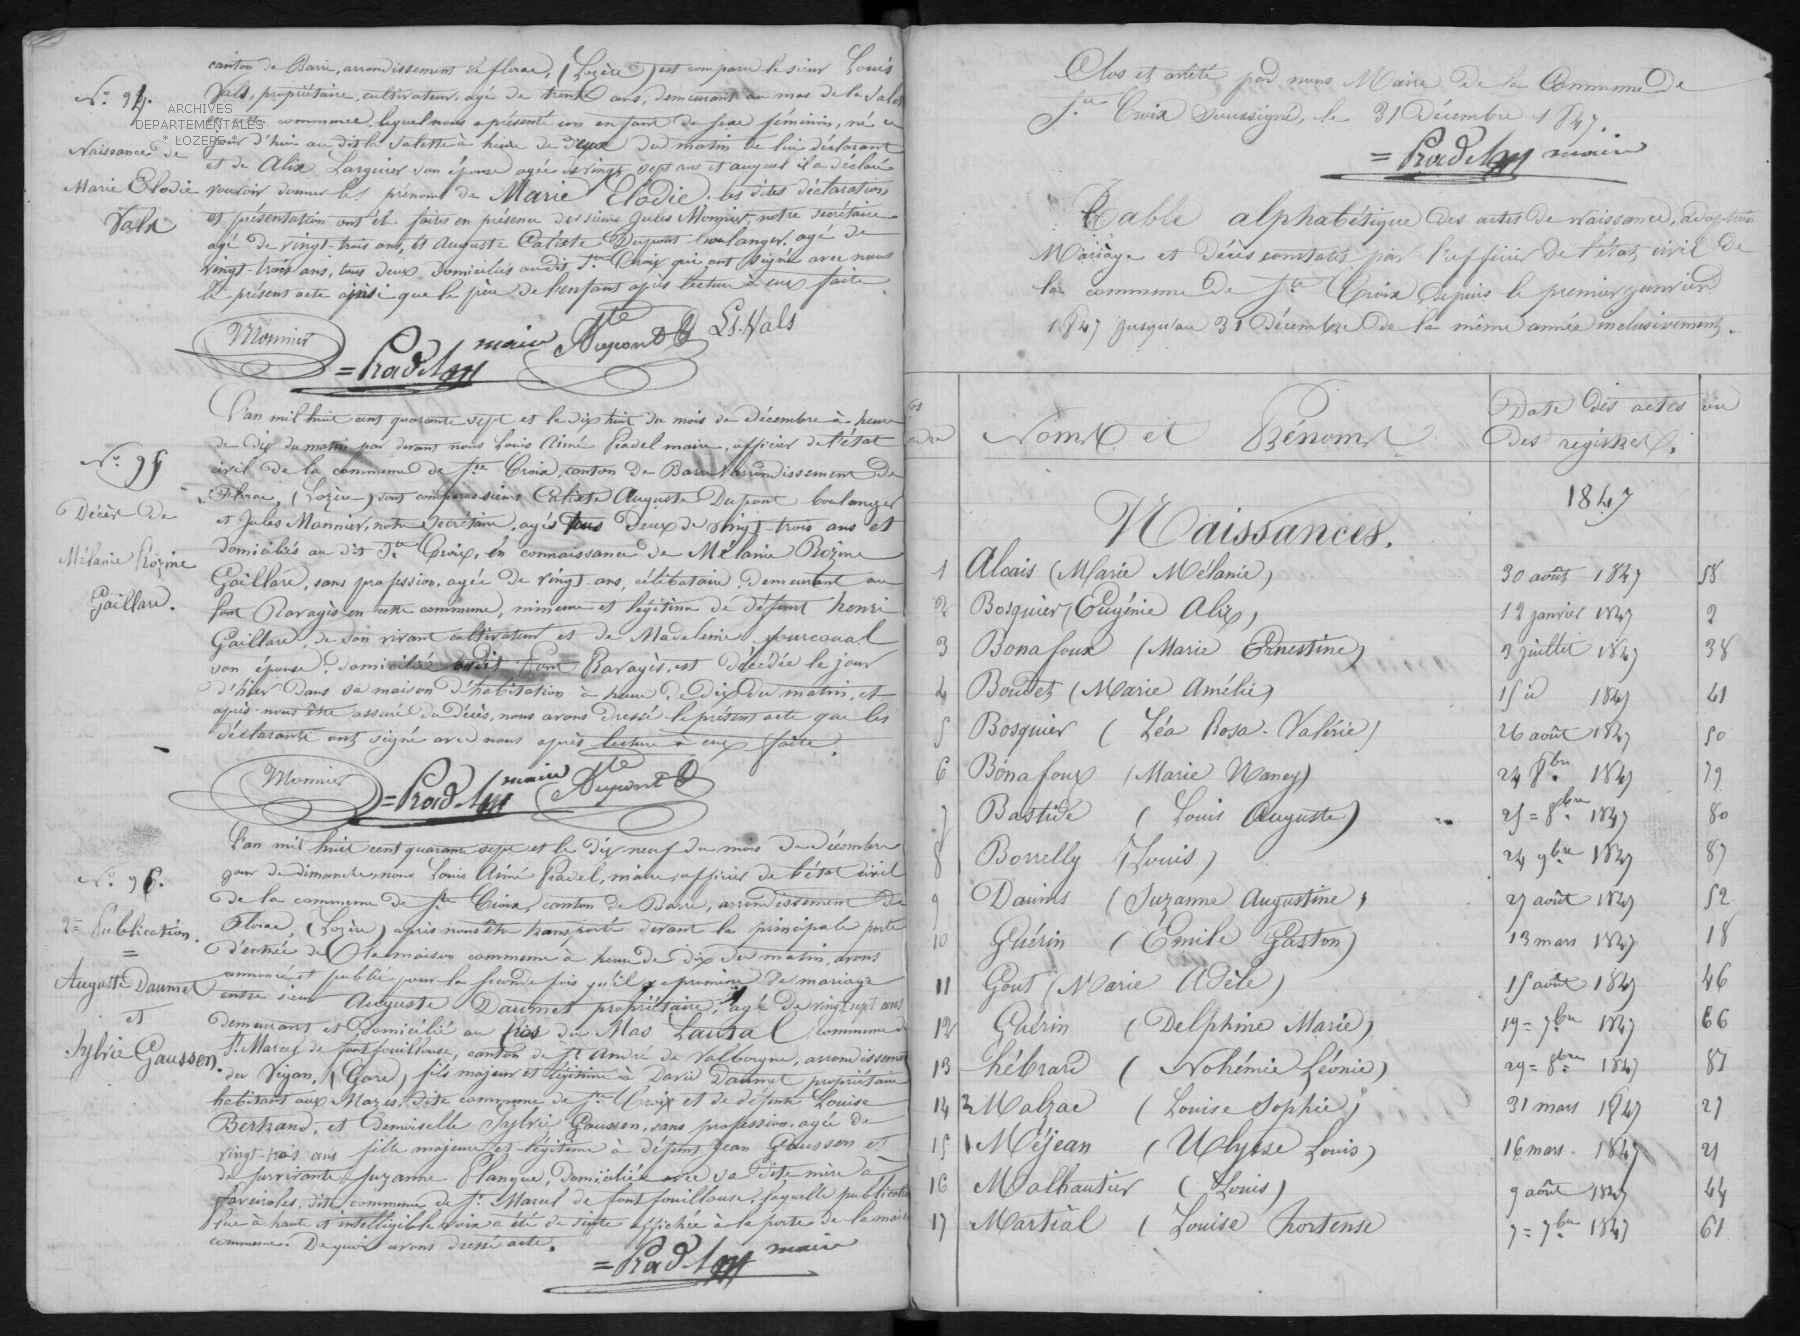 ARCHIVES
DEPARTEMENTALES
* LOZERE *
canton de Barre, arrondissement de florac, (Lozère) est comparu le sieur Louis
Vals, propriétaire, cultivateur, agé de trente ans, demeurant au mas de la Salet
commune, lequel nous a présenté un enfant de sexe féminin, né ce
jour d'hui au dit la Salette à heure de deux du matin de lui déclarant
et de Alix Larguier son épouse agée de vingt sept ans et auquel il a déclaré
vouloir donner les prénoms de Marie Elodie. les dites déclaration
et présentation ont été faites en présence des sieurs Jules Monnier, notre secrétaire
agé de vingt-trois ans, et Auguste Caliste Dupont boulanger, agé de
vingt-trois ans, tous deux domiciliés au dit Ste Croix qui ont signé avec nous
le présent acte ainsi que le père de l'enfant après lecture à eux faite
N° 94.
Naissance de
Marie Elodie
Vals
Monnier
= Pradel maire
Dupont
Ls. Vals
N° 95
Décès de
Mélanie Rozine
Gaillard.
L'an mil huit cent quarante sept et le dix huit du mois de Décembre à heure
de dix du matin par devant nous Louis Aimé Pradel maire, officier de l'état
civil de la commune de Ste Croix, canton de Barre arrondissement de
Florac, (Lozère) sont comparus sieurs Caliste Auguste Dupont boulanger
et Jules Monnier, notre secrétaire, agés tous deux de vingt-trois ans et
domiciliés au dit Ste Croix, en connaissance de Mélanie Rozine
Gaillard, sans profession, agée de vingt ans, célibataire, demeurant au
font Ravagès en cette commune, mineure et légitime de défunt henri
Gaillard, de son vivant cultivateur et de Madeleine fourcoual
son épouse, domicilié audit font Ravagès, est décédée le jour
d'hier dans sa maison d'habitation à heure de dix du matin, et
après nous être assuré du décès, nous avons dressé le présent acte que les
déclarants ont signé avec nous après lecture à eux faite.
Monnier
= Pradel maire
Dupont
N° 96.
2e Publication.
=
Auguste Daumet
et
Sylvie Gaussen.
L'an mil huit cent quarante sept et le dix neuf du mois de décembre
jour de dimanche nous Louis Aimé Pradel, maire, officier de l'état civil
de la commune de Ste Croix, canton de Barre, arrondissement de
Florac, (Lozère) après nous être transporté devant la principale porte
d'entrée de la maison commune à heure de dix du matin, avons
annoncé et publié pour la seconde fois qu'il y a promesse de mariage
entre sieur Auguste Daumet propriétaire, agé de vingt sept ans
demeurant et domicilié au du Mas Lauzal commune
St Marcel de fontfouillouse, canton de St André de Valborgne, arrondissement
du Vigan, (Gard) fils majeur et légitime à David Daumet propriétaire
habitant aux Mazes, dite commune de Ste Croix et de défunte Louise
Bertrand, et Demoiselle Sylvie Gaussen, sans profession, agée de
vingt-trois ans fille majeure et légitime à défunt Jean Gaussen et
de survivante Suzanne Planque, domiciliée avec sa dite mère à
dite commune de St Marcel de fontfouillouse, laquelle publication
lue à haute et intelligible voix a été de suite affichée à la porte de la maison
commune. De quoi avons dressé acte.
= Pradel maire
Clos et arrêté par nous Maire de la Commune de
Ste Croix soussigné, le 31 Décembre 1847.
= Pradel maire
Table alphabétique des actes de naissance, adoption
Mariage et décès constatés par l'officier de l'état civil de
la commune de Ste Croix depuis le premier janvier
1847 jusqu'au 31 Décembre de la même année inclusivement.
Noms et Prénoms
Date des actes ou
des registres.
1847
Naissances.
1 Alcais (Marie Mélanie) 30 août 1847 58
2 Bosquier (Eugénie Alix) 12 janvier 1847 2
3 Bonafoux (Marie Ernestine) 3 juillet 1847 38
4 Boudet (Marie Amélie) 15 id 1847 41
5 Bosquier (Léa Rosa Valérie) 26 août 1847 50
6 Bonafoux (Marie Nancy) 24 8bre 1847 79
7 Bastide (Louis Auguste) 25 = 8bre 1847 80
8 Borrelly (Louis) 24 9bre 1847 87
9 Daunis (Suzanne Augustine) 27 août 1847 52
10 Guérin (Emile Gaston) 13 mars 1847 18
11 Gout (Marie Adèle) 15 août 1847 46
12 Guérin (Delphine Marie) 19 = 7bre 1847 66
13 hébrard (Nohémie Léonie) 29 = 8bre 1847 81
14 Malzac (Louise Sophie) 31 mars 1847 27
15 Méjean (Ulysse Louis) 16 mars 1847 21
16 Malhautier (Louis) 9 août 1847 44
17 Martial (Louise hortense 7 = 7bre 1847 61